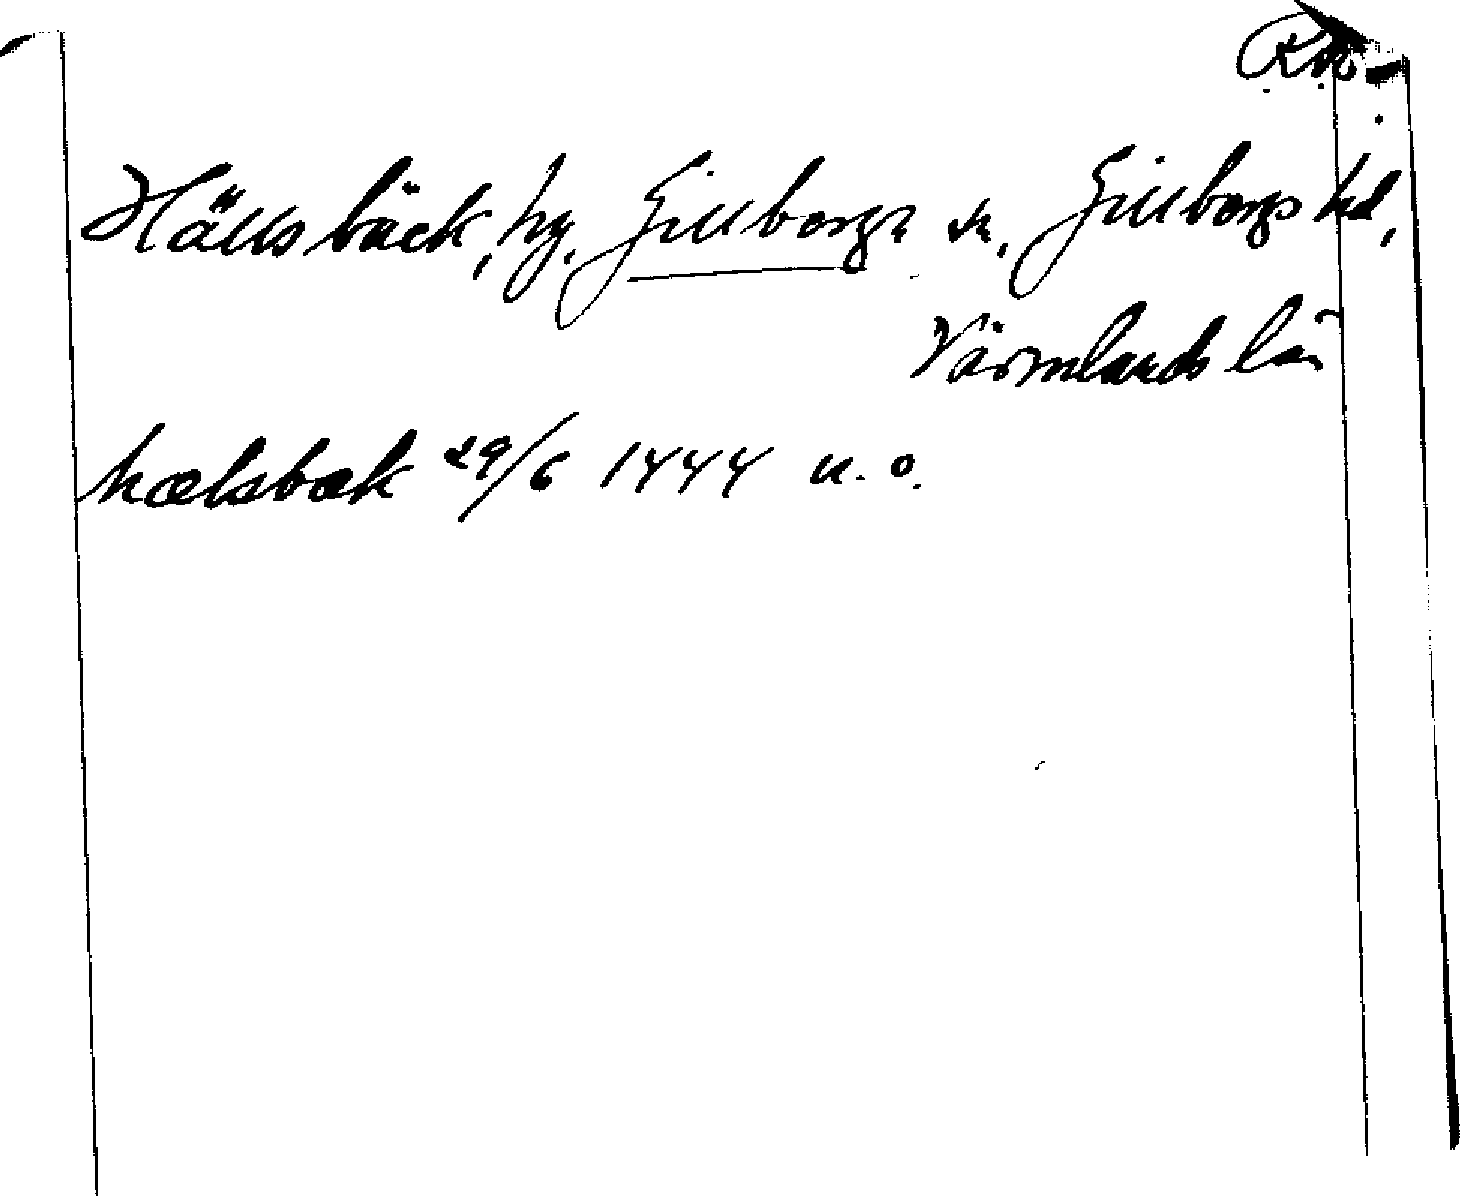 Hällsbäck, hg. Gillberga sn, Gillbergs hd,
Värmlands län
hælsbæk 29/6 1444 n. o.